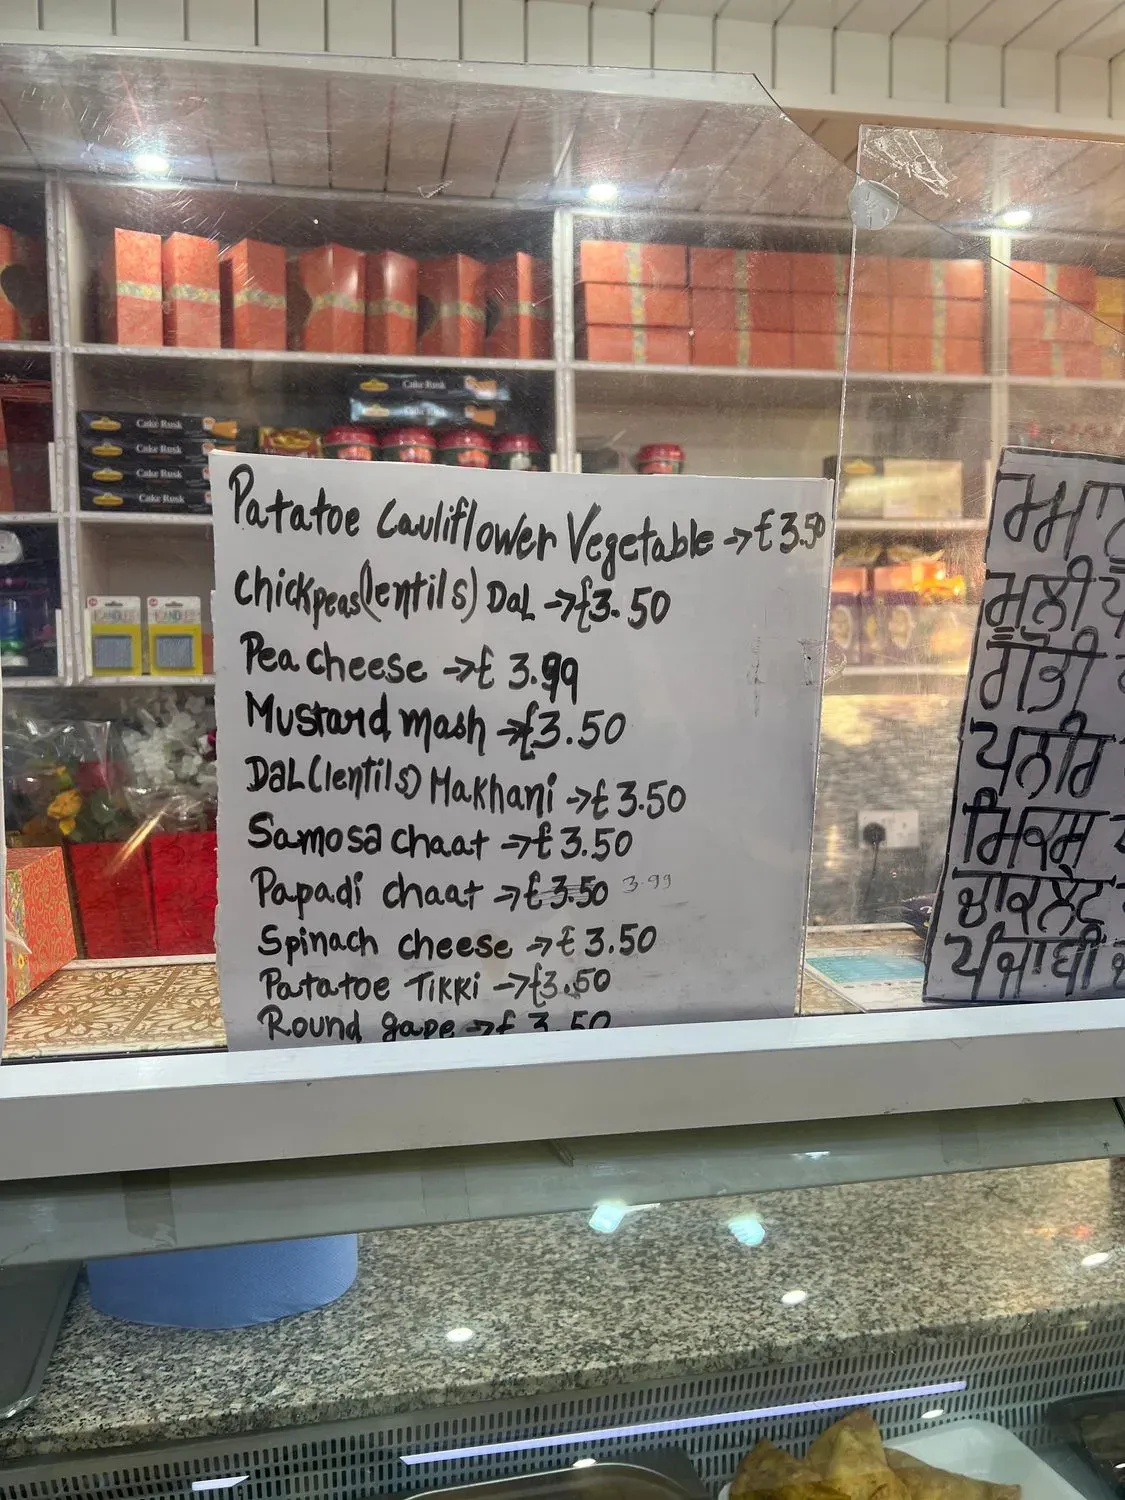 Cake Rusk
Cake Rusk
Cake Rusk
Cake Rusk
Cake Rusk
Cake Rusk
Patatoe Cauliflower Vegetable → £3.50
Chickpeas (lentils) Dal → £3.50
Pea cheese → £ 3.99
Mustard mash → £3.50
Dal (lentils) Makhani → £ 3.50
Samosa chaat → £ 3.50
Papadi chaat → £ 3.50 3.99
Spinach cheese → £ 3.50
Patatoe Tikki → £3.50
Round gape → £ 3.50
ਗੋਭੀ
ਪਨੀਰ
ਮਿਕਸ
ਪੰਜਾਬੀ